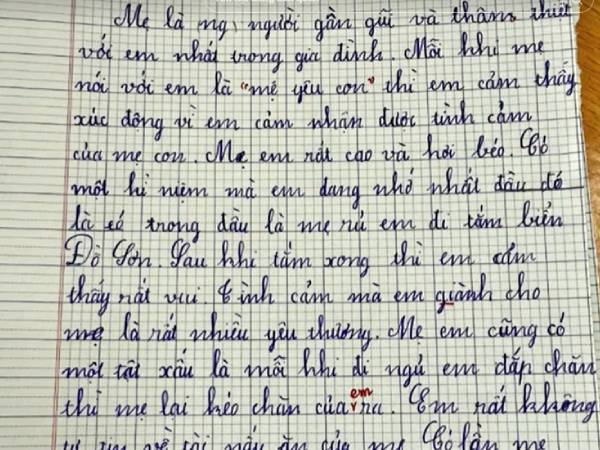 Mẹ là ng, người gần gũi và thân thiết
với em nhất trong gia đình. Mỗi khi mẹ
nói với em là "mẹ yêu con" thì em cảm thấy
xúc động vì em cảm nhận được tình cảm
của mẹ con. Mẹ em rất cao và hơi béo. Có
một kỉ niệm mà em đang nhớ nhất đầu đó
là có trong đầu là mẹ rủ em đi tắm biển
Đồ Sơn. Sau khi tắm xong thì em cảm
thấy rất vui. Tình cảm mà em giành cho
mẹ là rất nhiều yêu thương. Mẹ em cũng có
một tật xấu là mỗi khi đi ngủ em đắp chăn
thì mẹ lại kéo chăn của em ra. Em rất không
về tài nấu ăn của mẹ. Có lần mẹ